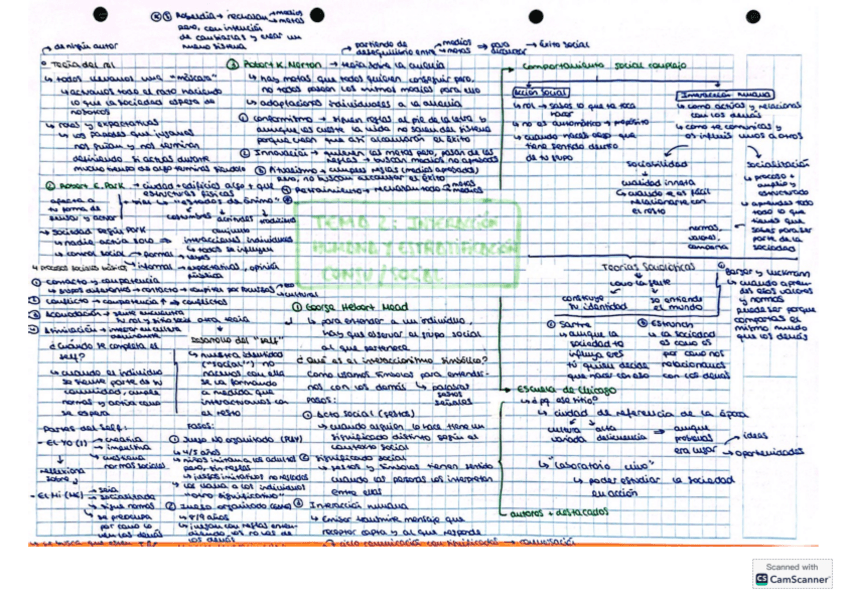 ⑤ Rebeldía → rechazan → medios
→ metas
pero, con intención
de cambiarlas y crear un
nuevo sistema
→ de ningún autor
Teoría del rol
↳ todos llevamos una "máscara"
↳ actuamos todo el rato haciendo
lo que la sociedad espera de
nosotros
↳ roles y expectativas
↳ los papeles que jugamos
nos guían y nos terminan
definiendo. Si actúas durante
mucho tiempo de algo terminas siéndolo
③ Robert K. Merton → teoría sobre la anomia
partiendo de → medios → para → éxito social
desequilibrio entre → metas
↳ hay metas que todos quieren conseguir pero,
no todos poseen los mismos medios para ello
↳ adaptaciones individuales a la anomia
① Conformismo → siguen reglas al pie de la letra
② Innovación → quieren las metas pero, pasan de las
reglas → buscan medios no aprobados
③ Ritualismo → cumplen reglas (medios aprobados)
pero, no buscan alcanzar el éxito
④ Retraimiento → rechazan todo → metas
→ medios
② Robert E. Park → ciudad + edificios algo + que
estructuras físicas
afecta a
tu forma de
pensar y actuar
"estados de ánimo"
costumbres actitudes tradiciones
conjunto
↳ sociedad según Park
↳ nadie actúa solo ⇒ interacciones individuales
↳ todos se influyen
↳ control social → formal → leyes
→ informal → expectativas, opinión
pública
↳ procesos sociales básicos
① Contacto y competencia
② Conflicto → competencia ↑ ⇒ conflictos
③ Acomodación → gente encuentra
su rol y sitio
④ Asimilación → integrar en cultura
dominante
TEMA 2: INTERACCIÓN
HUMANA Y ESTRATIFICACIÓN
CONSU / SOCIAL
Comportamiento social complejo
Acción social
↳ rol → sabes lo que te toca
hacer
↳ no es automático → propósito
↳ cuando haces algo que
tiene sentido dentro
de tu grupo
Interacción humana
↳ como actúas y relacionas
con los demás
↳ como te comunicas y
os influís unos a otros
Sociabilidad
cualidad innata
↳ cuando te es fácil
relacionarte con
el resto
Socialización
↳ proceso +
amplio y
estructurado
↳ aprendes todo
todo lo que
tienes que
saber para ser
parte de la
sociedad
normas,
valores,
Teorías Sociológicas
como la gente
construye
tu identidad
se entiende
el mundo
② Sartre
↳ aunque la
sociedad te
influya eres
tú quien decide
que hacer con eso
③ Goffman
↳ la sociedad
es como es
por como nos
relacionamos
con los demás
④
Berger y Luckmann
↳ cuando apren-
des esos valores
y normas
puedes ser porque
compartes el
mismo mundo
que los demás
Escuela de Chicago
↳ ¿pq. ese sitio?
↳ ciudad de referencia de la época
cultura
variada
alta
delincuencia
→ aunque
pobreza
era lugar → ideas
→ oportunidades
↳ "laboratorio vivo"
↳ poder estudiar la sociedad
en acción
autores + destacados
① George Herbert Mead
↳ para entender a un individuo,
hay que observar al grupo social
al que pertenece
¿Qué es el interaccionismo simbólico?
Como usamos símbolos para entender-
nos con los demás ↳ palabras
gestos
señales
PASOS:
① Acto social (gestos)
↳ cuando alguien lo hace tiene un
significado distinto según el
contexto social
② Significado social
↳ gestos y símbolos tienen sentido
cuando las personas los interpretan
entre ellas
③ Interacción humana
↳ Emisor transmite mensaje que
receptor capta y al que responde
↗ ciclo comunicación con significados → comunicación
¿Cuándo se completa el
self?
↳ cuando el individuo
se siente parte de su
comunidad, cumple
normas y actúa como
se espera
Desarrollo del "self"
↳ nuestra identidad
("social") no
nacemos con ella
se va formando
a medida que
interactuamos con
el resto
Partes del Self:
- El Yo (I) → creativa
→ impulsiva
→ cuestiona
normas sociales
reflexiona
sobre
- El Mí (Me) → guía
→ socializada
→ sigue normas
→ se preocupa
por como lo
ven los demás
PASOS:
① Juego no organizado (PLAY)
↳ 4/5 años
↳ niños imitan a los adultos
pero, sin reglas
↳ juegos imitativos no reglados
"otro significativo"
② Juego organizado (GAME)
↳ 8/9 años
↳ juegan con reglas enten-
diendo los roles de
los demás